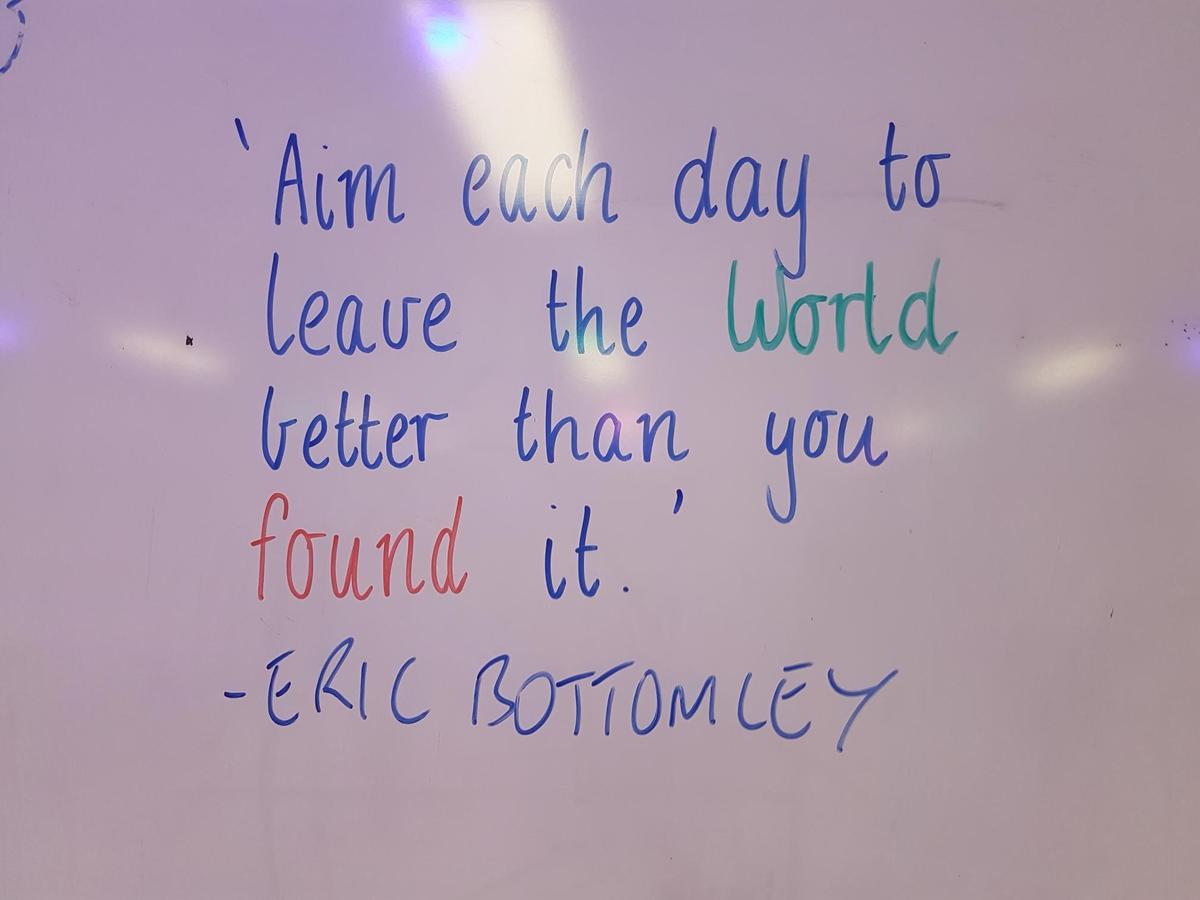 'Aim each day to
leave the World
better than you
found it.'
- ERIC BOTTOMLEY